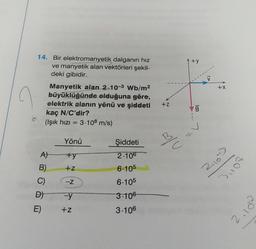 14. Bir elektromanyetik dalganın hız
ve manyetik alan vektörleri şekil-
deki gibidir.
Manyetik alan 2.10⁻³ Wb/m²
büyüklüğünde olduğuna göre,
elektrik alanın yönü ve şiddeti
kaç N/C'dir?
(Işık hızı = 3·10⁸ m/s)
+y
v
+x
+z
B
Yönü Şiddeti
A) +y 2·10⁶
B) +z 6·10⁵
C) -z 6·10⁵
D) -y 3·10⁶
E) +z 3·10⁶